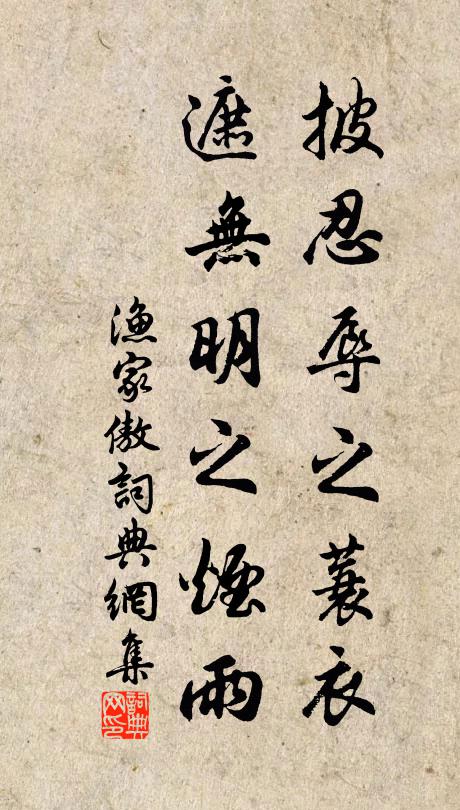 披忍辱之蓑衣
遮無明之煙雨
漁家傲詞典網集
詞典網印